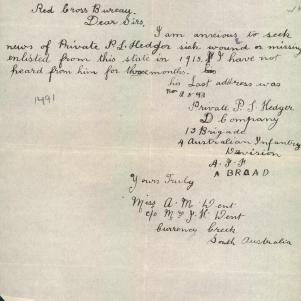 Red Cross Bureau.
Dear Sirs.
I am anxious to seek
news of Private P. L. Hedger sick wound or missing
enlisted from this state in 1915. I have not
heard from him for three months.
his Last address was
Private P. L. Hedger
D Company
13 Brigade
4 Australian Infantry
Division
A.I.F
ABROAD
1491
Yours Truly
Miss A. M. Went
c/o Mr J. H. Went
Currency Creek
South Australia